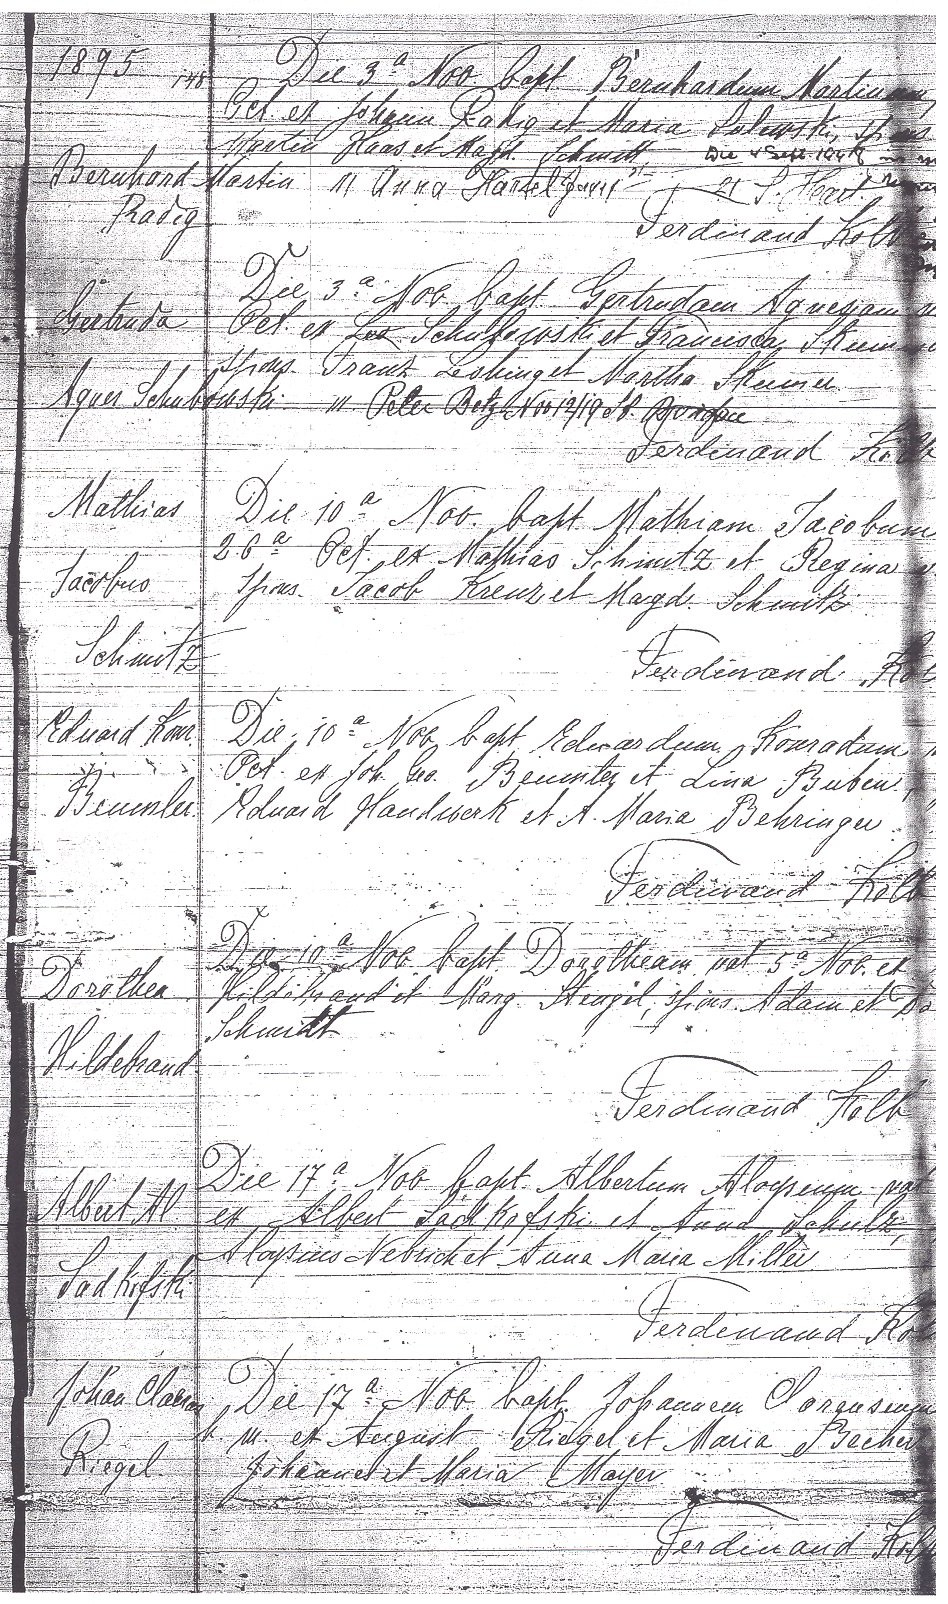 1895
148
Die 3ª Nov. bapt Bernhardum Martinum,
Oct. ex Johann Radig et Maria
Martin Haas et Magd. Schmitt. Die 4 Sept
Bernhard Martin
Radig
Ferdinand Kolb
Gertruda
Agnes Schubowski
Die 3ª Nov. bapt. Gertrudam Agnesiam
Oct. ex Leo et Francisca
spons. Frank et Martha
Peter Betz Nov 12/19 St. Boniface
Ferdinand Kolb
Mathias
Jacobus
Schmitz
Die 10ª Nov. bapt Mathiam Jacobum
26ª Oct. ex Mathias Schmitz et Regina
spons. Jacob Kreuz et Magd. Schmitz
Ferdinand Kol
Eduard Konr.
Beumler.
Die 10ª Nov. bapt Edwardum Konradum
Oct. ex Joh. Geo. et Lina Buben,
Eduard Handwerk et A. Maria Behringer
Ferdinand Kolb
Dorothea
Hildebrand
Die 10ª Nov bapt Dorotheam nat 5ª Nov. ex
Hildebrand et Marg. Stengel, spons. Adam et Do
Schmidt
Ferdinand Kolb
Albert Al
Sadkofski
Die 17ª Nov bapt. Albertum Aloysium nat
ex Albert Sadkofski et Anna Schultz,
Aloysius Nebrich et Anna Maria Miller
Ferdinand Kol
Johan
Riegel.
Die 17ª Nov bapt. Johannem
h. m. ex August Riegel et Maria Becher
Johannes et Maria Mayer
Ferdinand Kolb